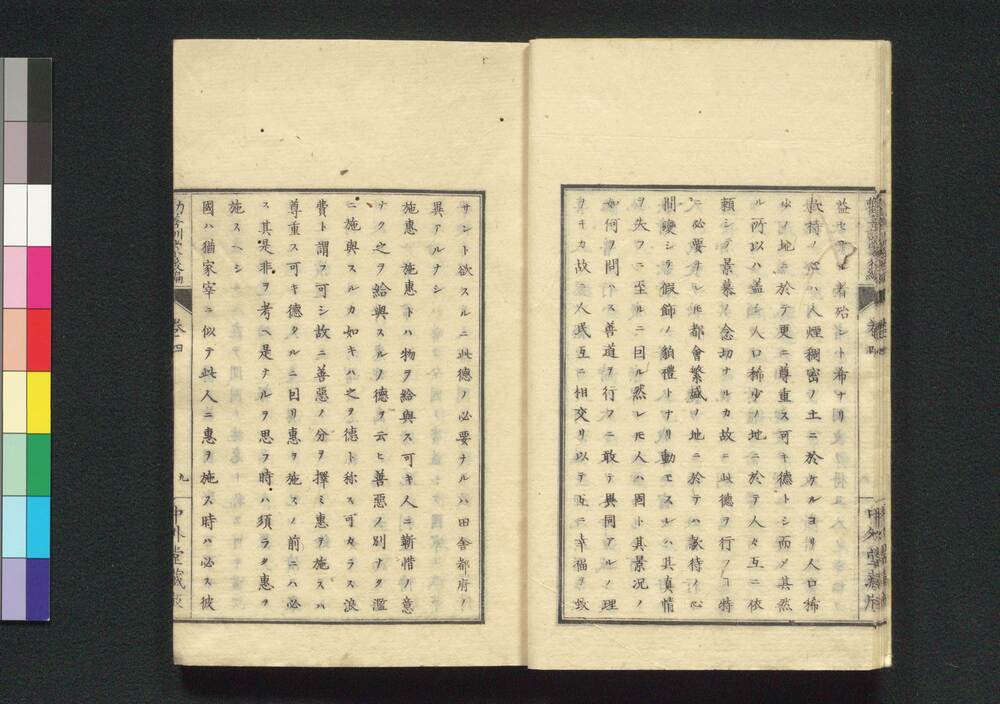 益セサル者殆ント希ナリ
款待ノ心ハ人煙稠密ノ土ニ於ケルヨリ人口稀
少ノ地ニ於テ更ニ尊重ス可キ德トシ而メ其然
ル所以ハ蓋シ人口稀少ノ地ニ於テ人々互ニ依
頼シテ景慕ノ念切ナルカ故ニ此德ヲ行フコ特
ニ必要タレ𪜈都會繁盛ノ地ニ於テハ款待ノ心
間變シテ假飾ノ貌禮トナリ動モスレハ其真情
ヲ失フニ至ルニ因ル然レ𪜈人ハ固ト其景况ノ
如何ヲ問ハス善道ヲ行フニ敢テ異同アルノ理
ナキカ故ニ人民互ニ相交リ以テ互ニ幸福ヲ致
サント欲スルニ此德ノ必要ナルハ田舎都府ノ
異アルナシ
施惠 施惠トハ物ヲ給與ス可キ人ニ靳惜ノ意
ナク之ヲ給與スルノ德ヲ云ヒ善惡ノ別ナク濫
ニ施與スルカ如キハ之ヲ德ト称ス可カラス浪
費ト謂フ可シ故ニ善惡ノ分ヲ擇ミ惠ヲ施スハ
尊重ス可キ德タルニ因リ惠ヲ施スノ前ニハ必
ス其是非ヲ考ヘ是ナルヲ思フ時ハ須ラク惠ヲ
施スヘシ
國ハ猶家宰ニ似テ此人ニ惠ヲ施ス時ハ必ス彼
卷四
九
中外堂藏版